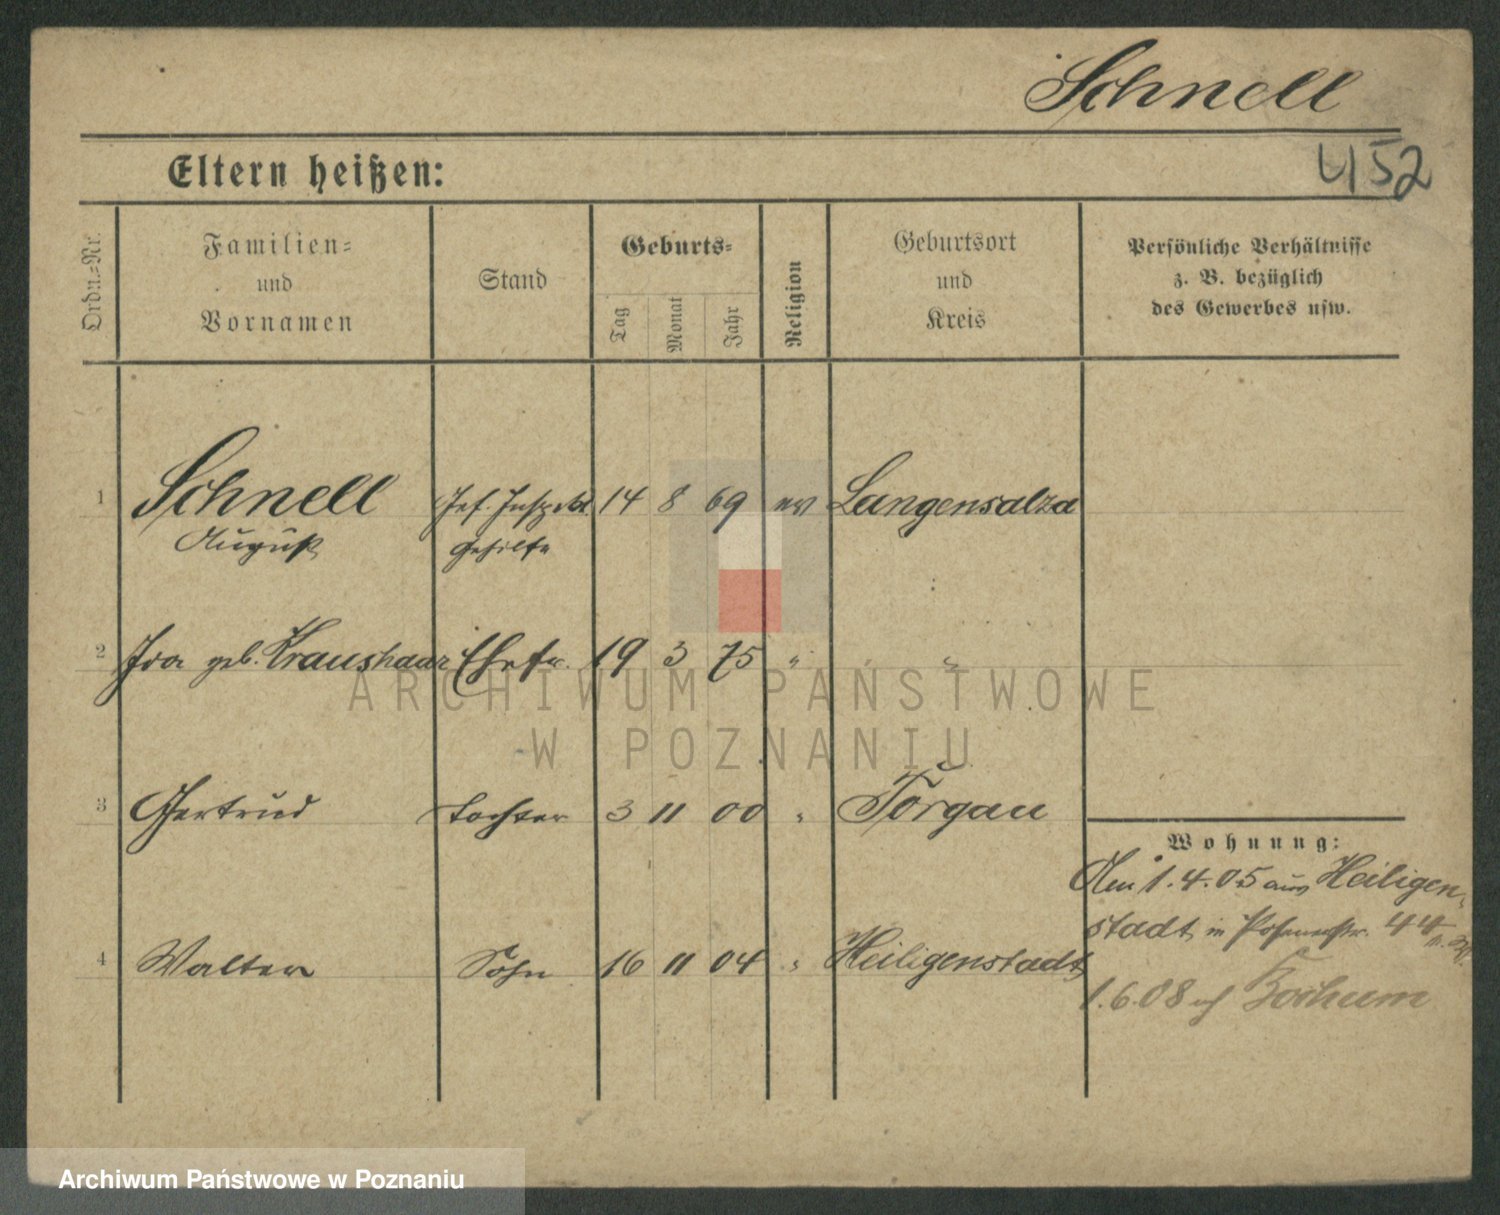 Schnell
452
Eltern heißen:
Ordn.-Nr.
Familien-
und
Vornamen
Stand
Geburts-
Tag
Monat
Jahr
Religion
Geburtsort
und
Kreis
Persönliche Verhältnisse
z. B. bezüglich
des Gewerbes usw.
1 Schnell 14 8 69 ev Langensalza
August Gehilfe
2 Ida geb. Kraushaar Ehefr. 19 3 75 " "
3 Gertrud Tochter 3 11 00 " Torgau
Wohnung:
Am 1.4.05 aus Heiligen-
stadt in Posenerstr. 44
4 Walter Sohn 16 11 04 " Heiligenstadt
1.6.08 Bochum
ARCHIWUM PAŃSTWOWE
W POZNANIU
Archiwum Państwowe w Poznaniu